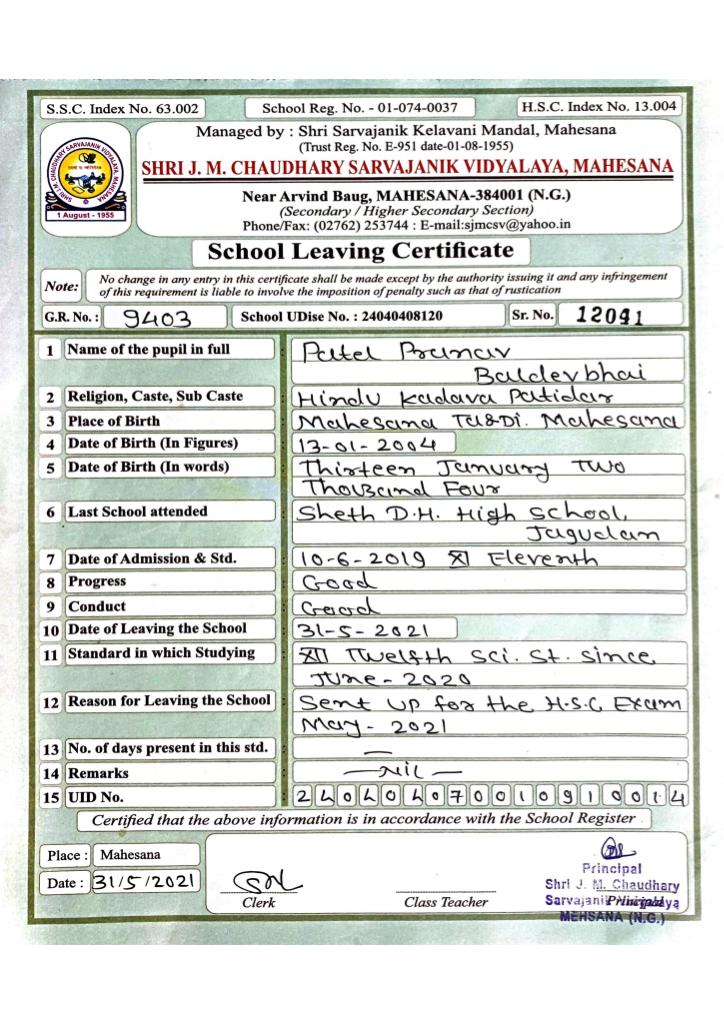 S.S.C. Index No. 63.002
School Reg. No. - 01-074-0037
H.S.C. Index No. 13.004
SHRI J. M. CHAUDHARY SARVAJANIK VIDYALAYA, MAHESANA
1 August - 1955
Managed by : Shri Sarvajanik Kelavani Mandal, Mahesana
(Trust Reg. No. E-951 date-01-08-1955)
SHRI J. M. CHAUDHARY SARVAJANIK VIDYALAYA, MAHESANA
Near Arvind Baug, MAHESANA-384001 (N.G.)
(Secondary / Higher Secondary Section)
Phone/Fax: (02762) 253744 : E-mail:sjmcsv@yahoo.in
School Leaving Certificate
Note: No change in any entry in this certificate shall be made except by the authority issuing it and any infringement
of this requirement is liable to involve the imposition of penalty such as that of rustication
G.R. No. : 9403 School UDise No. : 24040408120 Sr. No. 12091
1 Name of the pupil in full : Patel Pranav
Baldevbhai
2 Religion, Caste, Sub Caste : Hindu Kadava Patidar
3 Place of Birth : Mahesana Ta&Di. Mahesana
4 Date of Birth (In Figures) : 13-01-2004
5 Date of Birth (In words) : Thirteen January Two
Thousand Four
6 Last School attended : Sheth D.H. High School,
Jagudan
7 Date of Admission & Std. : 10-6-2019 XI Eleventh
8 Progress : Good
9 Conduct : Good
10 Date of Leaving the School : 31-5-2021
11 Standard in which Studying : XII Twelfth Sci. St. since
June-2020
12 Reason for Leaving the School : Sent up for the H.S.C. Exam
May-2021
13 No. of days present in this std. : —
14 Remarks : — Nil —
15 UID No. : 240404070010910014
Certified that the above information is in accordance with the School Register .
Place : Mahesana
Date : 31/5/2021
Clerk
Class Teacher
Principal
Principal
Shri J. M. Chaudhary
Sarvajanik Vidyalaya
MEHSANA (N.G.)